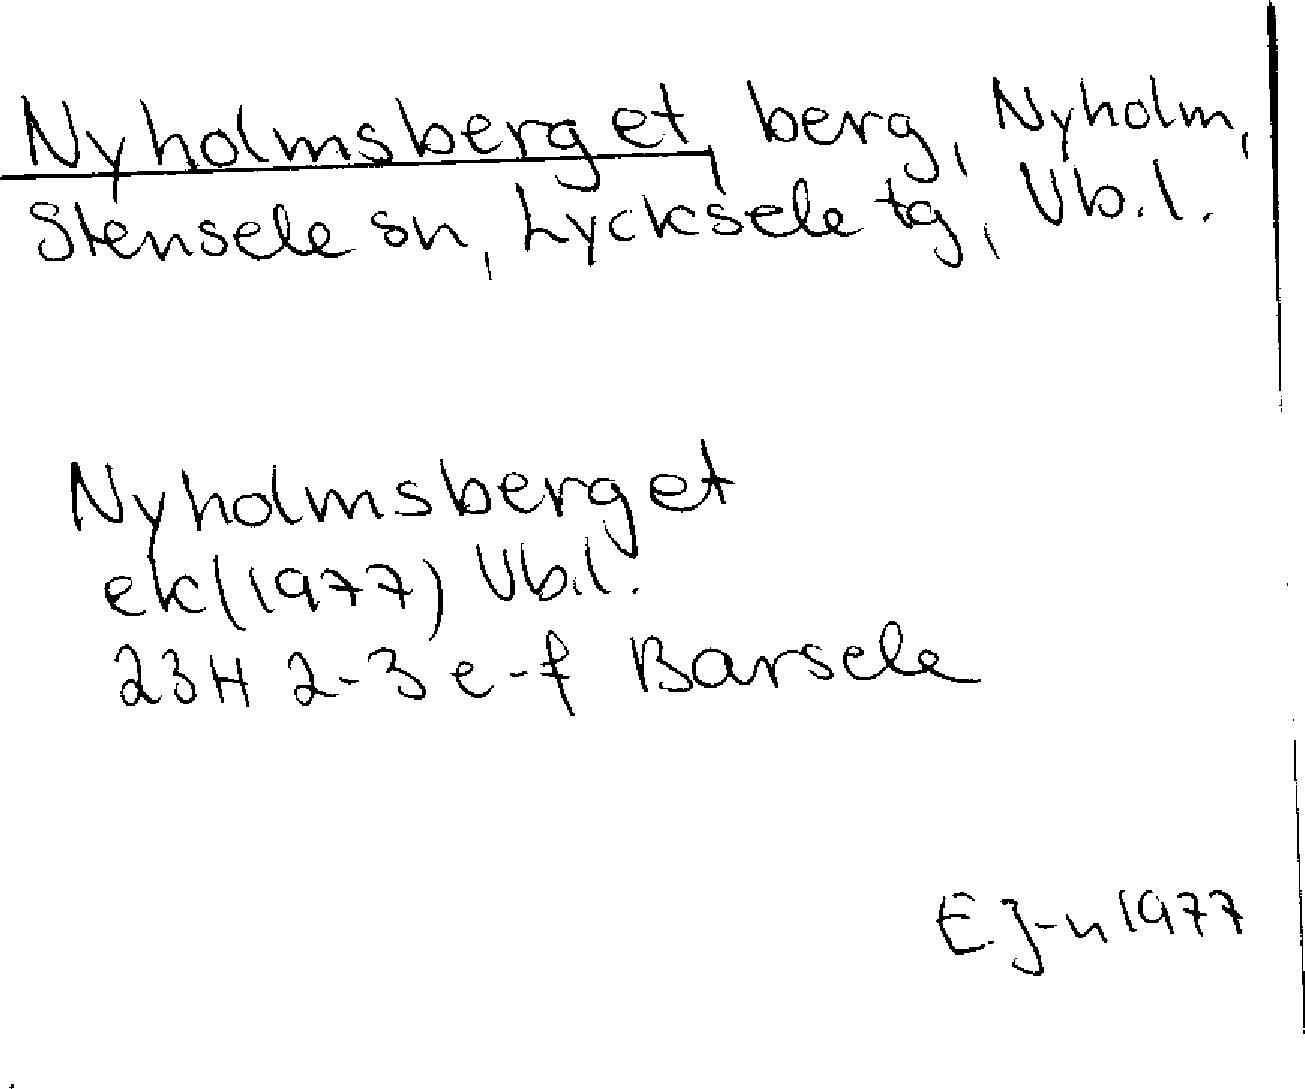 Nyholmsberget, berg, Nyholm,
Stensele sn, Lycksele tg, Vb.l.
Nyholmsberget
ek(1977) Vb.l.
23H 2-3 e-f Barsele
E.J-n 1977